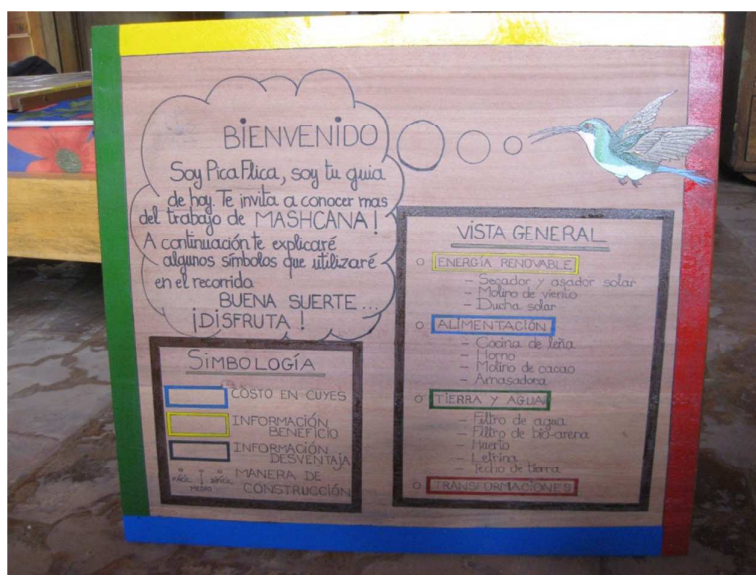 BIENVENIDO
Soy Pica Flica, soy tu guia
de hoy. Te invita a conocer mas
del trabajo de MASHCANA!
A continuación te explicaré
algunos símbolos que utilizaré
en el recorrido.
BUENA SUERTE...
¡DISFRUTA!
SIMBOLOGÍA
COSTO EN CUYES
INFORMACIÓN
BENEFICIO
INFORMACIÓN
DESVENTAJA
MANERA DE
CONSTRUCCIÓN
MEDIO
VISTA GENERAL
ENERGÍA RENOVABLE
- Secador y asador solar
- Molino de viento
- Ducha solar
ALIMENTACIÓN
- Cocina de leña
- Horno
- Molino de cacao
- Amasadora
TIERRA Y AGUA
- Filtro de agua
- Filtro de bio-arena
- Huerto
- Letrina
- Techo de tierra
TRANSFORMACIONES